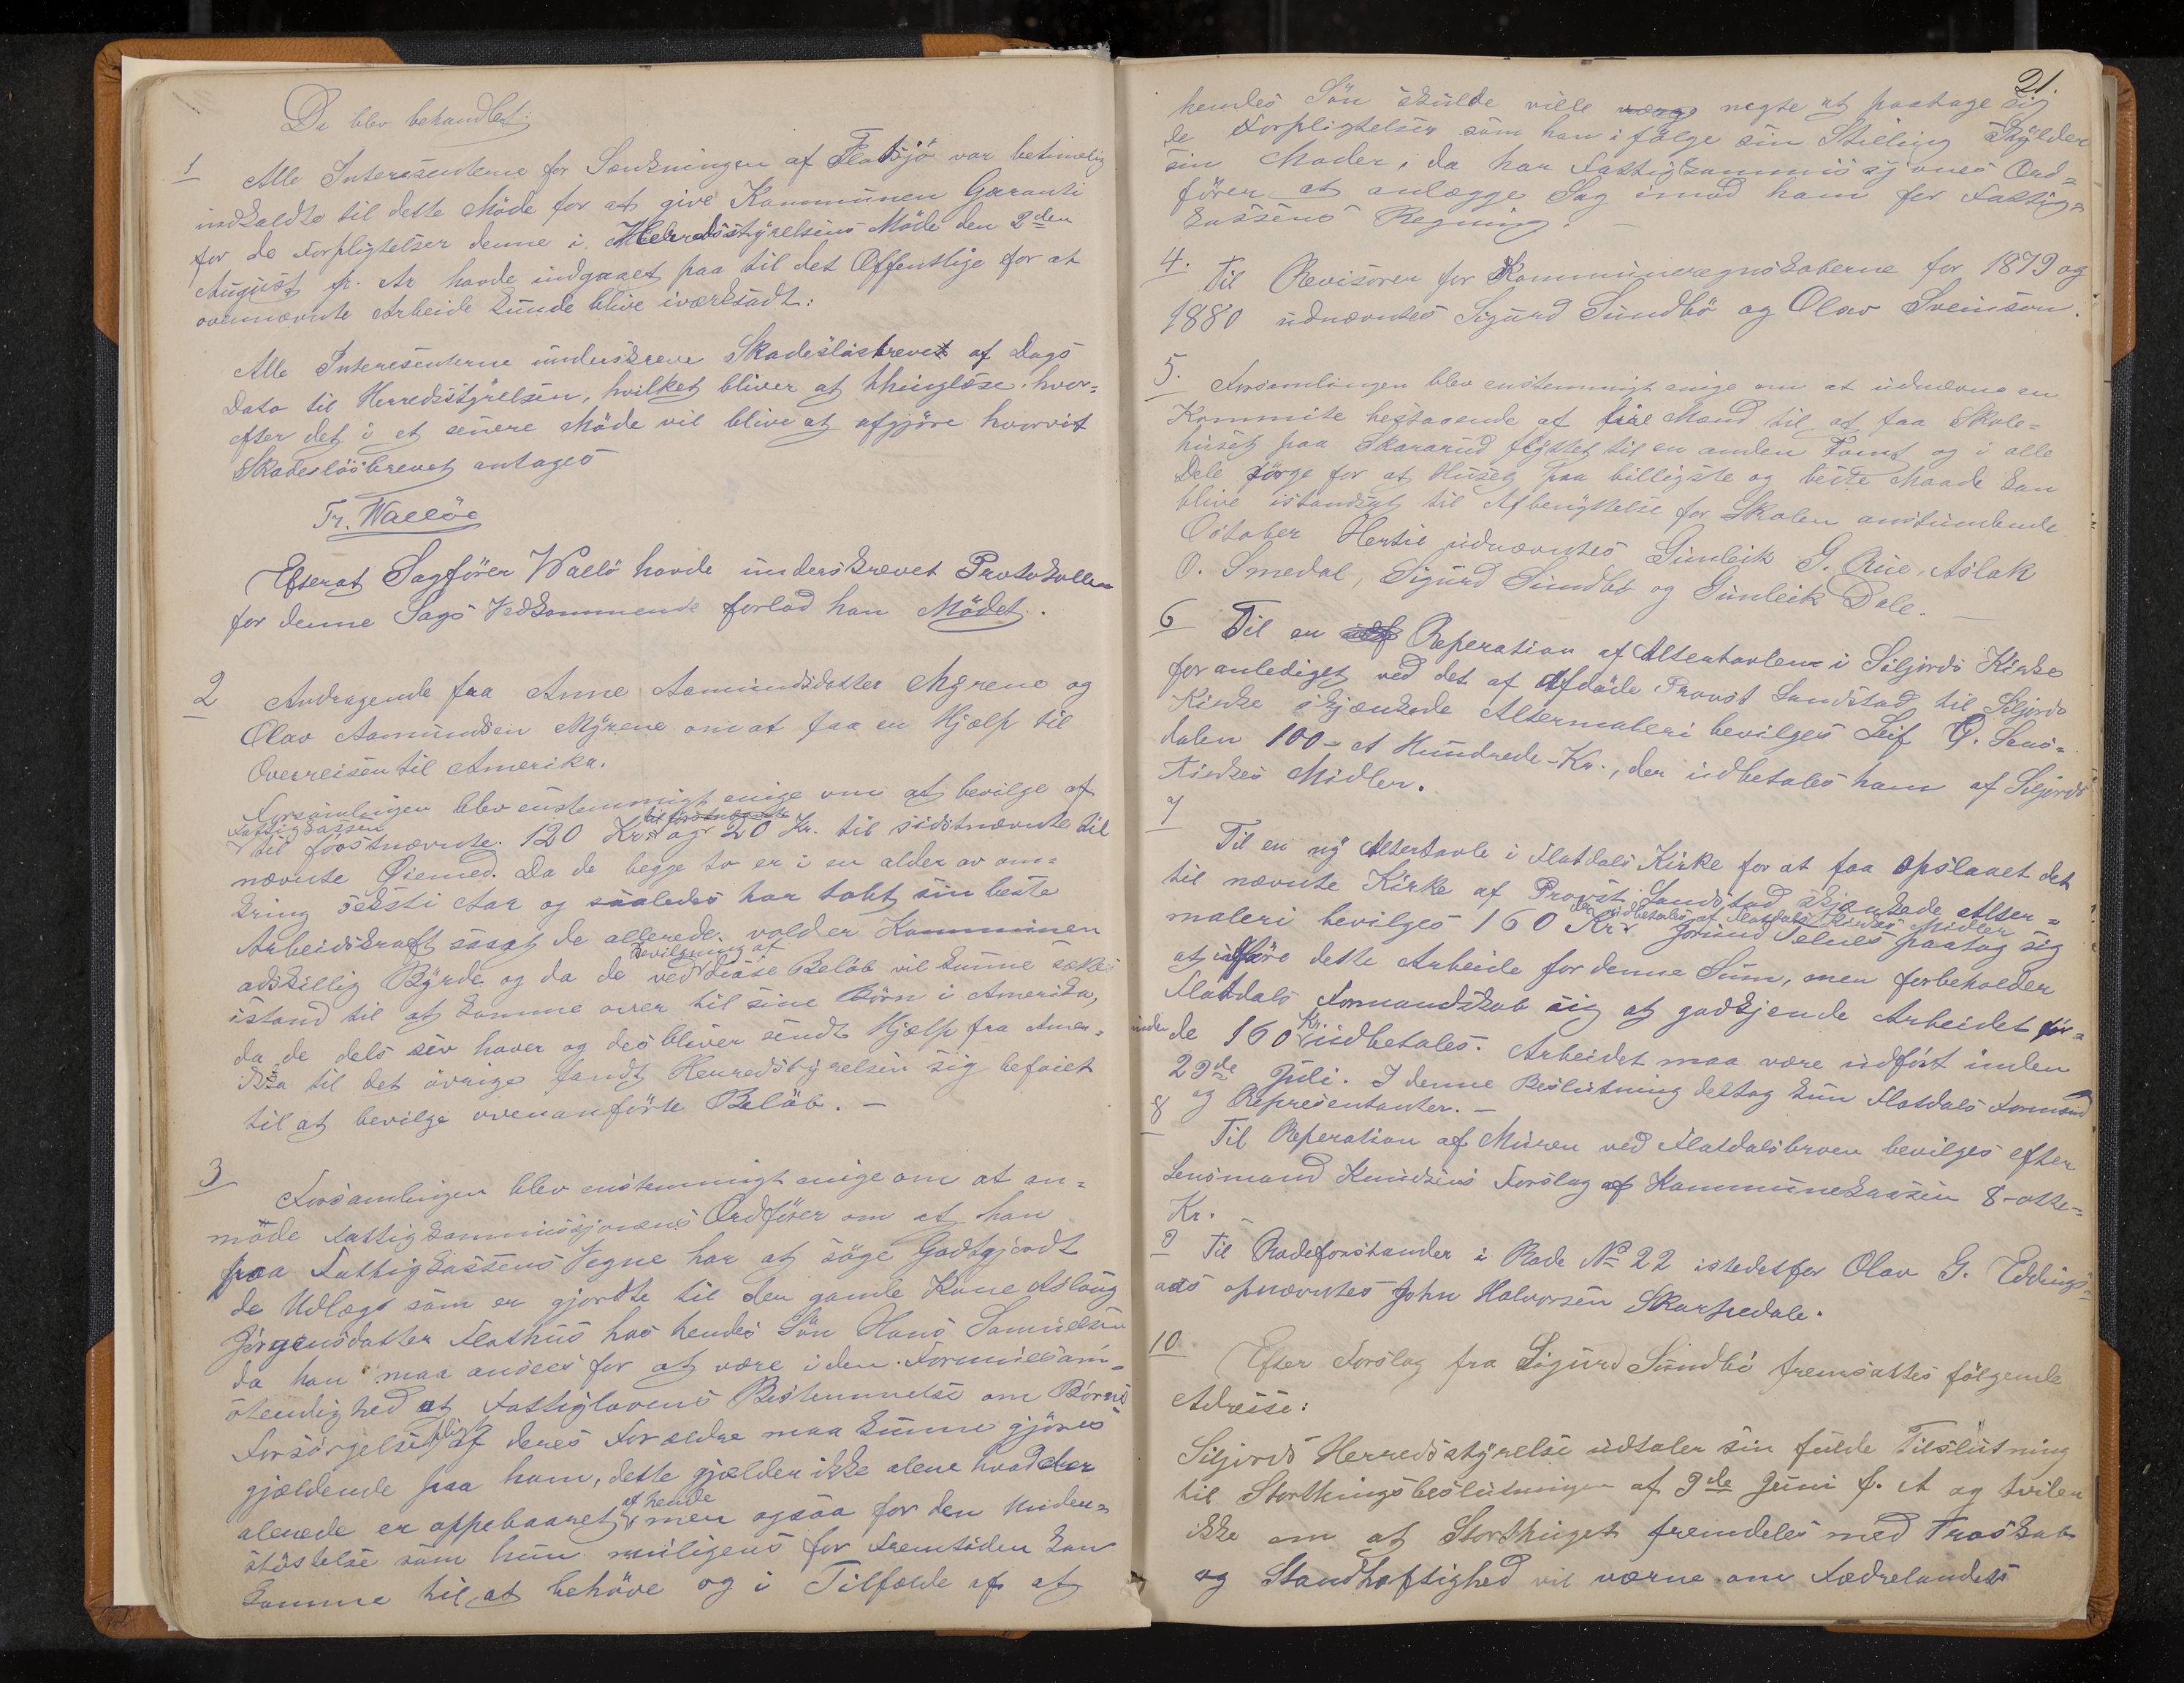 De blev behandlet:
1 Alle Interesenterne for Sænkningen af Flatsjö var betimelig
indkaldte til dette Möde for at give Kommunen Garanti
for de Forpligtelser denne i Herredsstyrelsens Möde den 2den
August f. Ar havde indgaaet paa til det Offentlige for at
ovennævnte Arbeide kunde blive iværksadt:
Alle Interesenterne underskreve Skadeslösbrevet af Dags
Dato til Herredsstyrelsen, hvilket bliver at thinglæse, hvor=
efter det i et senere Möde vil blive at afgjöre hvorvit
Skadeslösbrevet antages
Tr. Wallöe
Efterat Sagförer Wallö havde underskrevet Protokollen
for denne Sags Vedkommende forlod han Mödet.
2 Andragende fra Anne Aamundsdatter Myrene og
Olav Aamundsen Myrene om at faa en Hjælp til
Overreisen til Amerika.
Forsamlingen blev enstemmigt enige om at bevilge af
Fattigkassen
til förstnævnte 120 Kr. og 20 Kr. til sidstnævnte til
nævnte Øiemed. Da de begge to er i en alder av om=
kring seksti Aar og saaledes har tabt sin beste
Arbeidskraft saaat de allerede volder Kommunen
adskillig Byrde og da de ved Bevilgning af disse Beløb vil kunne sættes
istand til at komme over til sine Børn i Amerika,
da de dels selv haver og dels bliver sendt Hjælp fra Amer=
ika til det övrige fandt Herredstyrelsen sig beføiet
til at bevilge ovenanförte Beløb. —
3 Forsamlingen blev enstemmigt enige om at an=
möde Fattigkommissjonens Ordförer om at han
paa Fattigkassens Vegne har at söge Godtgjordt
de Udlæg som er gjordte til den gamle Kone Aslaug
Jörgensdatter Flathus hos hendes Sön Hans Samuelsen
da han maa ansees for at være i den Formuesom=
stendighed at Fattiglovens Bestemmelse om Børns
Forsörgelsespligt af deres Forældre maa kunne gjöres
gjældende paa ham, dette gjælder ikke alene hvad der
alerede er oppebaaret af hende men ogsaa for den Under=
støttelse som hun muligens for Fremtiden kan
komme til at behöve og i Tilfælde af at
21.
hendes Sön skulde ville negte at paatage sig
de Forpligtelser som han i fölge sin Stilling Skylder
sin Moder, da har Fattigkommissjones Ord=
förer at anlægge Sag imod ham for Fattig=
kassens Regning. —
4. Til Revisorer for Kommuneregnskaberne for 1879 og
1880 udnævntes Sigurd Sundbö og Olav Sveinson.
5. Forsamlingen blev enstemmigt enige om at udnævne en
Kommite bestaaende af fire Mænd til at faa Skole=
huset paa Skararud flyttet til en anden Tomt og i alle
Dele sörge for at Huset paa billigste og beste Maade kan
blive istandsat til Afbenyttelse for Skolen anstundende
October Hertil udnævntes Gunleik G. Rue, Aslak
O. Smedal, Sigurd Sundbö og Gunleik Dale.
6 Til en Reperation af Altertavlen i Siljords Kirke
foranlediget ved det af Afdöde Provst Landstad til Siljords
Kirke skjænkede Altermaleri bevilges Leif O. Sens=
dalen 100 – et Hundrede – Kr., der udbetales ham af Siljords
Kirkes Midler.
7
Til en ny Altertavle i Flatdals Kirke for at faa opslaaet det
til nævnte Kirke af Provst Landstad skjænkede Alter=
maleri bevilges 160 Kr. der udbetales af Flatdals Kirkes Midler Jorund Telnes paatog sig
at udföre dette Arbeide for denne Sum, men forbeholder
Flatdals Formandskab sig at godkjende Arbeidet för=
inden de 160 Kr. udbetales. Arbeidet maa være udfört inden
29de Juli. I denne Beslutning deltog kun Flatdals Formænd
og Representanter. —
8 Til Reperation af Muren ved Flatdalsbroen bevilges efter
Lensmand Knudsens Forslag af Kommunekassen 8 – otte=
Kr.
9 Til Rodeforstander i Rode No 22 istedetfor Olav G. Eddings=
aas opnævntes John Halvorsen Skarpedale.
10
Efter Forslag fra Sigurd Sundbö fremsattes fölgende
Adresse:
Siljords Herredsstyrelse udtaler sin fulde Tilslutning
til Storthingsbeslutningen af 9de Juni f. A og tviler
ikke om at Storthinget fremdeles med Troskab
og Standhaftighed vil værne om Fædrelandets